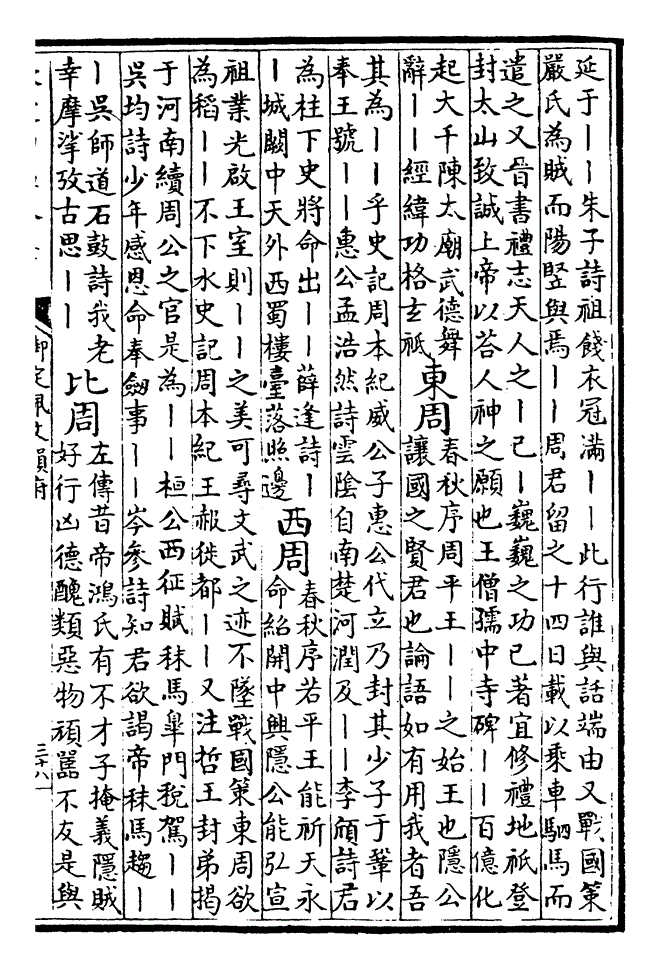 延于｜｜朱子詩祖餞衣冠滿｜｜此行誰與話端由又戰國策
嚴氏為賊而陽竪與焉｜｜周君留之十四日載以乘車駟馬而
遣之又晉書禮志天人之｜已｜巍巍之功已著宜修禮地祇登
封太山致誠上帝以荅人神之願也王僧孺中寺碑｜｜百億化
起大千陳太廟武德舞
辭｜｜經緯功格玄祇
東周
春秋序周平王｜｜之始王也隱公
讓國之賢君也論語如有用我者吾
其為｜｜乎史記周本紀威公子惠公代立乃封其少子于鞏以
奉王號｜｜惠公孟浩然詩雲陰自南楚河潤及｜｜李頎詩君
為柱下史將命出｜｜薛逢詩｜
｜城闕中天外西蜀樓臺落照邊
西周
春秋序若平王能祈天永
命紹開中興隱公能弘宣
祖業光啟王室則｜｜之美可尋文武之迹不墜戰國策東周欲
為稻｜｜不下水史記周本紀王赧徙都｜｜又注哲王封弟揭
于河南續周公之官是為｜｜桓公西征賦秣馬臯門稅駕｜｜
吳均詩少年感恩命奉劔事｜｜岑參詩知君欲謁帝秣馬趨｜
｜吳師道石鼓詩我老
幸摩挲攷古思｜｜
比周
左傳昔帝鴻氏有不才子掩義隱賊
好行凶德醜類惡物頑嚚不友是與
御定佩文韻府